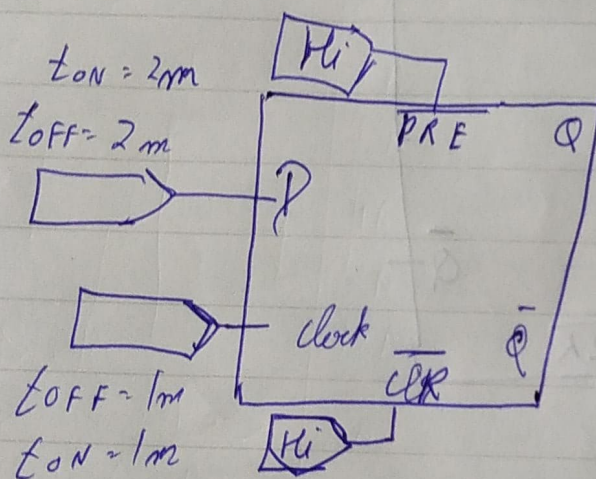 Hi
tON = 2m
tOFF = 2m
PRE
Q
D
Clock
Q̄
CLR
tOFF = 1m
tON = 1m
Hi